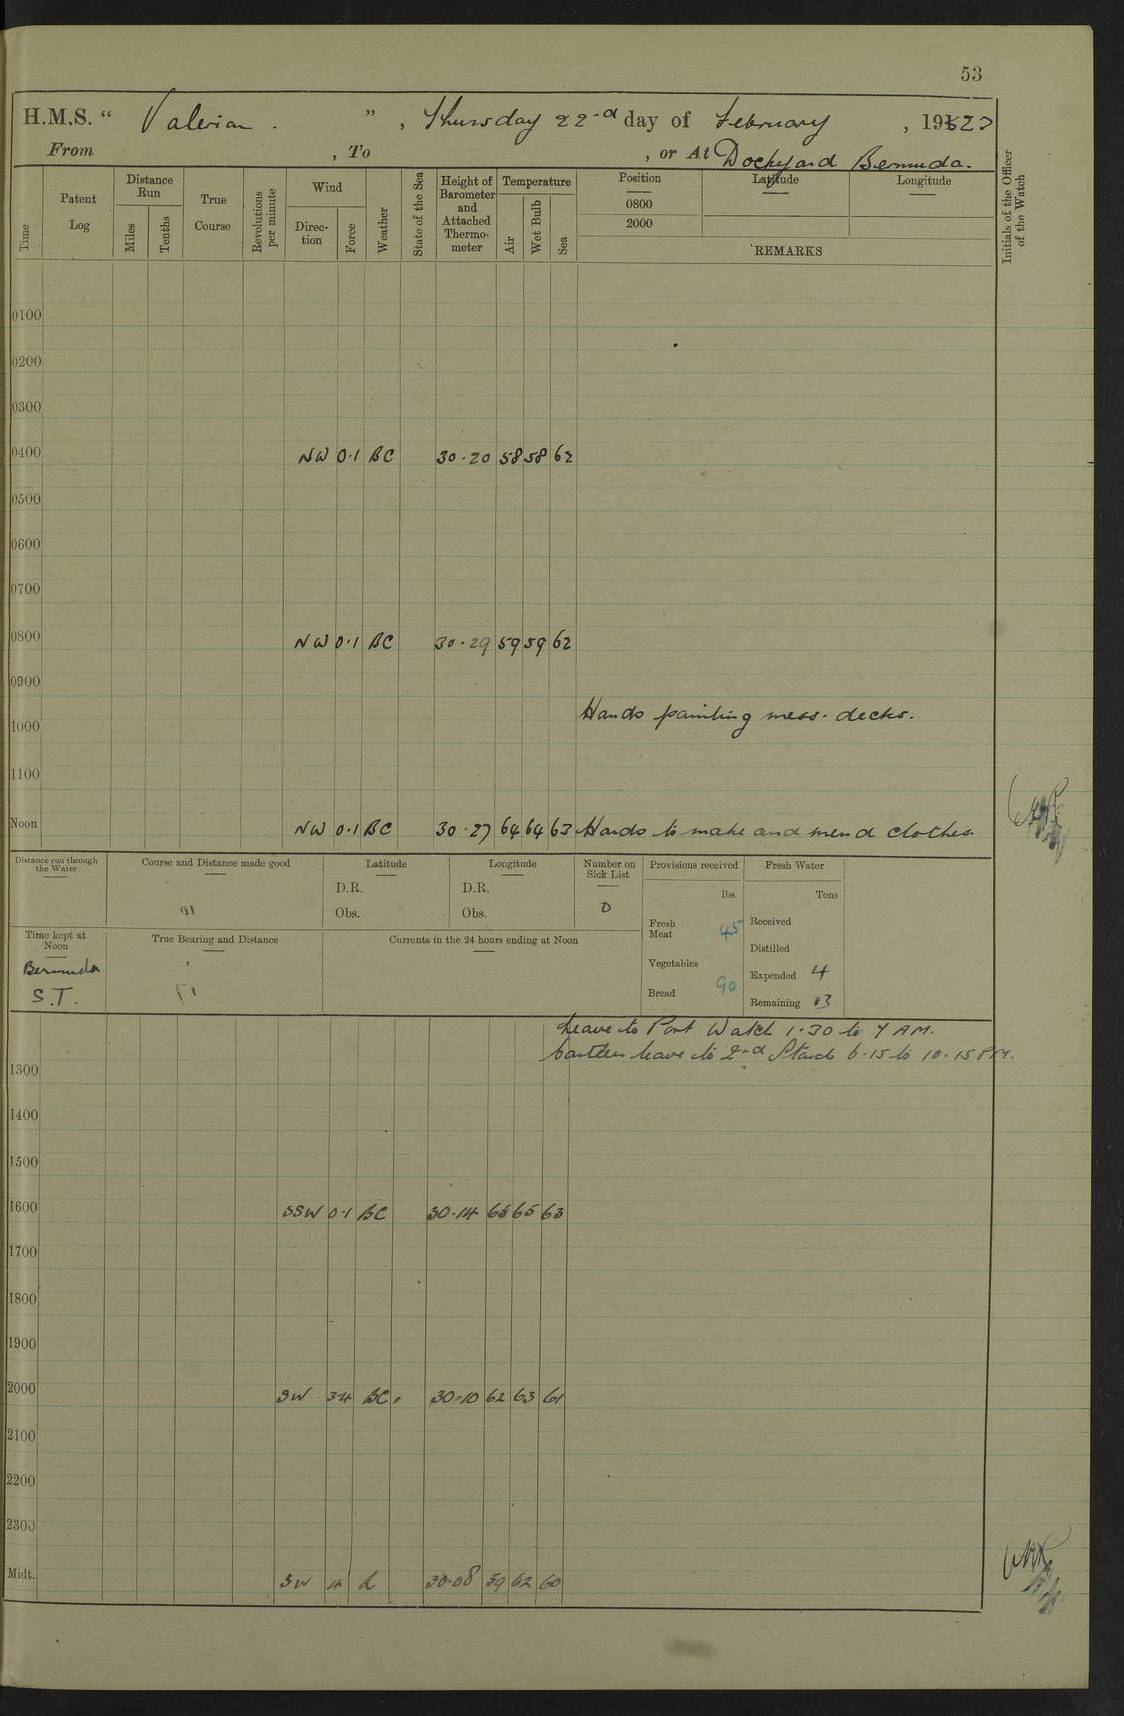 53
H.M.S. “ Valerian. ” , Thursday 22nd day of February , 1923
From , To , or At Dockyard Bermuda.
Time
Patent Log
Distance Run
Miles
Tenths
True Course
Revolutions per minute
Wind
Direction
Force
Weather
State of the Sea
Height of Barometer and Attached Thermometer
Temperature
Air
Wet Bulb
Sea
Position
0800
2000
Latitude
Longitude
REMARKS
Initials of the Officer of the Watch
0100
0200
0300
0400 NW 0·1 BC 30·20 58 58 62
0500
0600
0700
0800 NW 0·1 BC 30·29 59 59 62
0900
Hands painting mess-decks.
1000
1100
Noon NW 0·1 BC 30·27 64 64 63 Hands to make and mend clothes.
Distance run through the Water
Course and Distance made good
Latitude
D.R.
Obs.
Longitude
D.R.
Obs.
Number on Sick List
0
Provisions received
lbs.
Fresh Meat 45
Vegetables
Bread 90
Fresh Water
Tons
Received
Distilled
Expended 4
Remaining 13
Time kept at Noon
Bermuda
S.T.
True Bearing and Distance
Currents in the 24 hours ending at Noon
Leave to Port Watch 1·30 to 7 AM.
Canteen leave to 2nd Starbd 6·15 to 10·15 PM.
1300
1400
1500
1600 SSW 0·1 BC 30·14 65 65 63
1700
1800
1900
2000 SW 3·4 BC 30·10 62 63 61
2100
2200
2300
Midt. SW 4 30·08 59 62 60